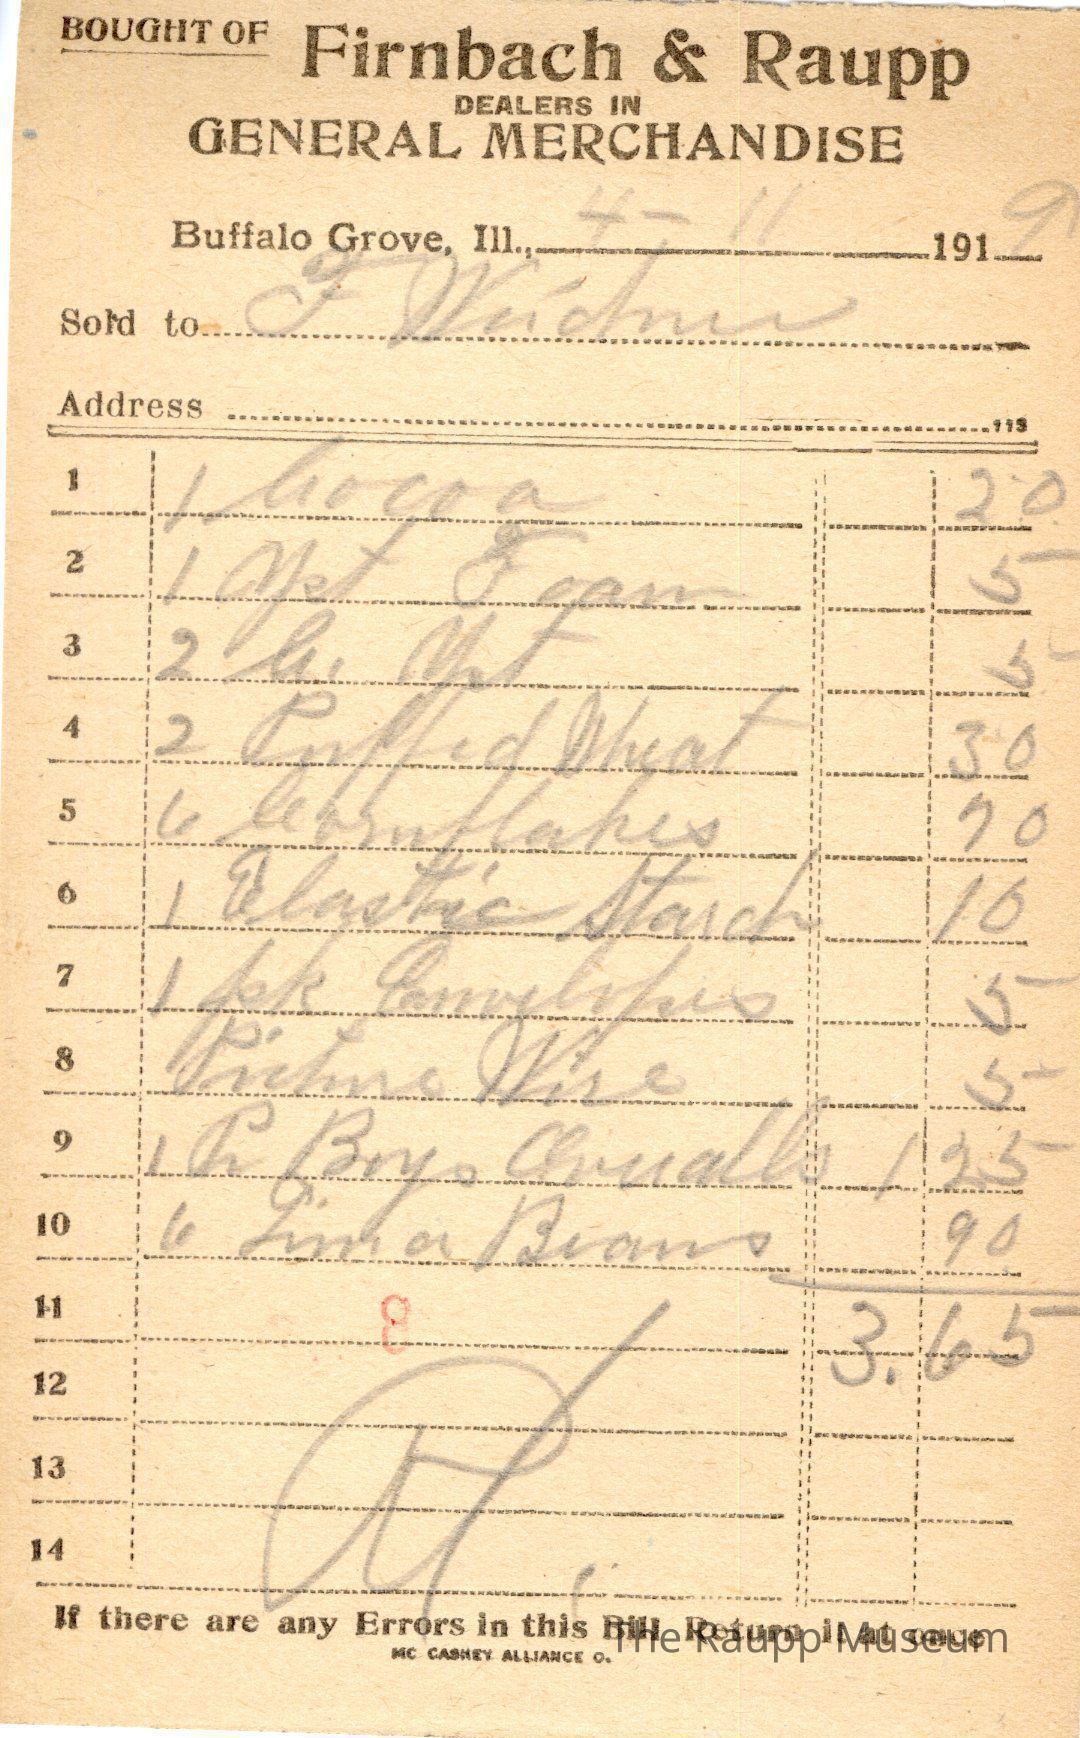 BOUGHT OF Firnbach & Raupp
DEALERS IN
GENERAL MERCHANDISE
Buffalo Grove, Ill., 4-11 1919
Sold to F Weidner
Address
113
1 1 Cocoa 20
2 1 Yst Foam 5
3 2 C. Yst 5
4 2 Puffed Wheat 30
5 6 Cornflakes 70
6 1 Elastic Starch 10
7 1 pk Envelopes 5
8 Picture Wire 5
9 1 Pr Boys Overalls 1 25
10 6 Lima Beans 90
11 8 3.65
12
13
14
If there are any Errors in this Bill Return it at once
MC CASKEY ALLIANCE O.
The Raupp Museum